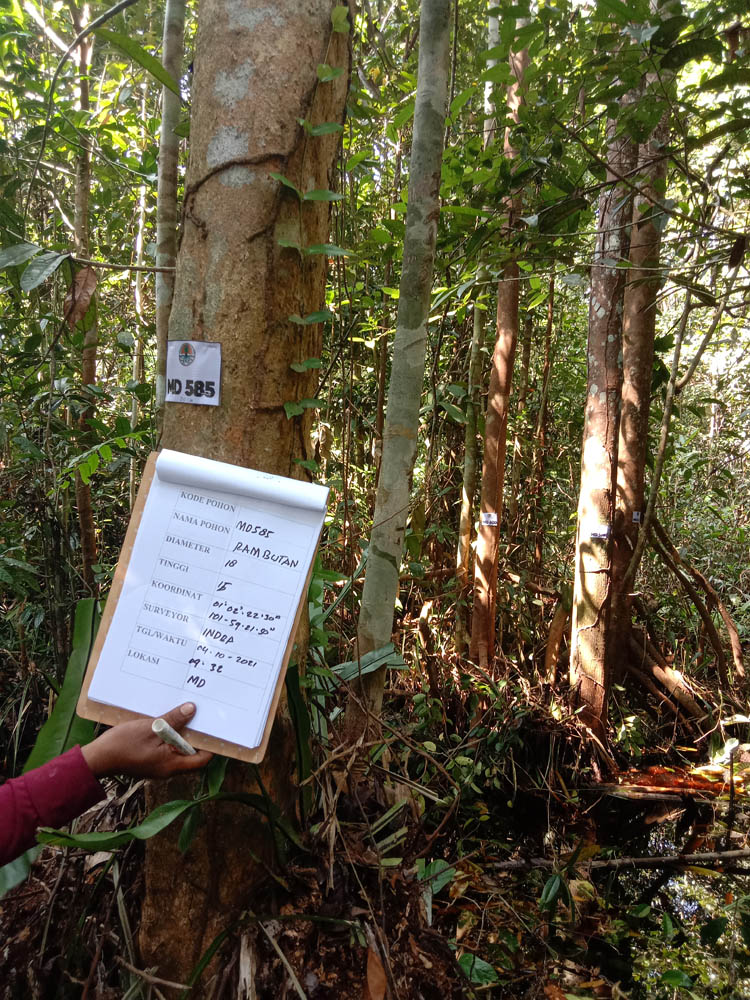 MD 585
KODE POHON MD585
NAMA POHON RAMBUTAN
DIAMETER 18
TINGGI 15
KOORDINAT 01°02'.22'.30"
101-59-21-50"
SURVEYOR INDRA
TGL/WAKTU 04-10-2021
09.32
LOKASI MD